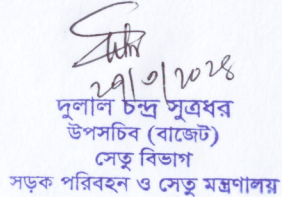 ২৭/৩/২০২৪
দুলাল চন্দ্র সুত্রধর
উপসচিব (বাজেট)
সেতু বিভাগ
সড়ক পরিবহন ও সেতু মন্ত্রণালয়